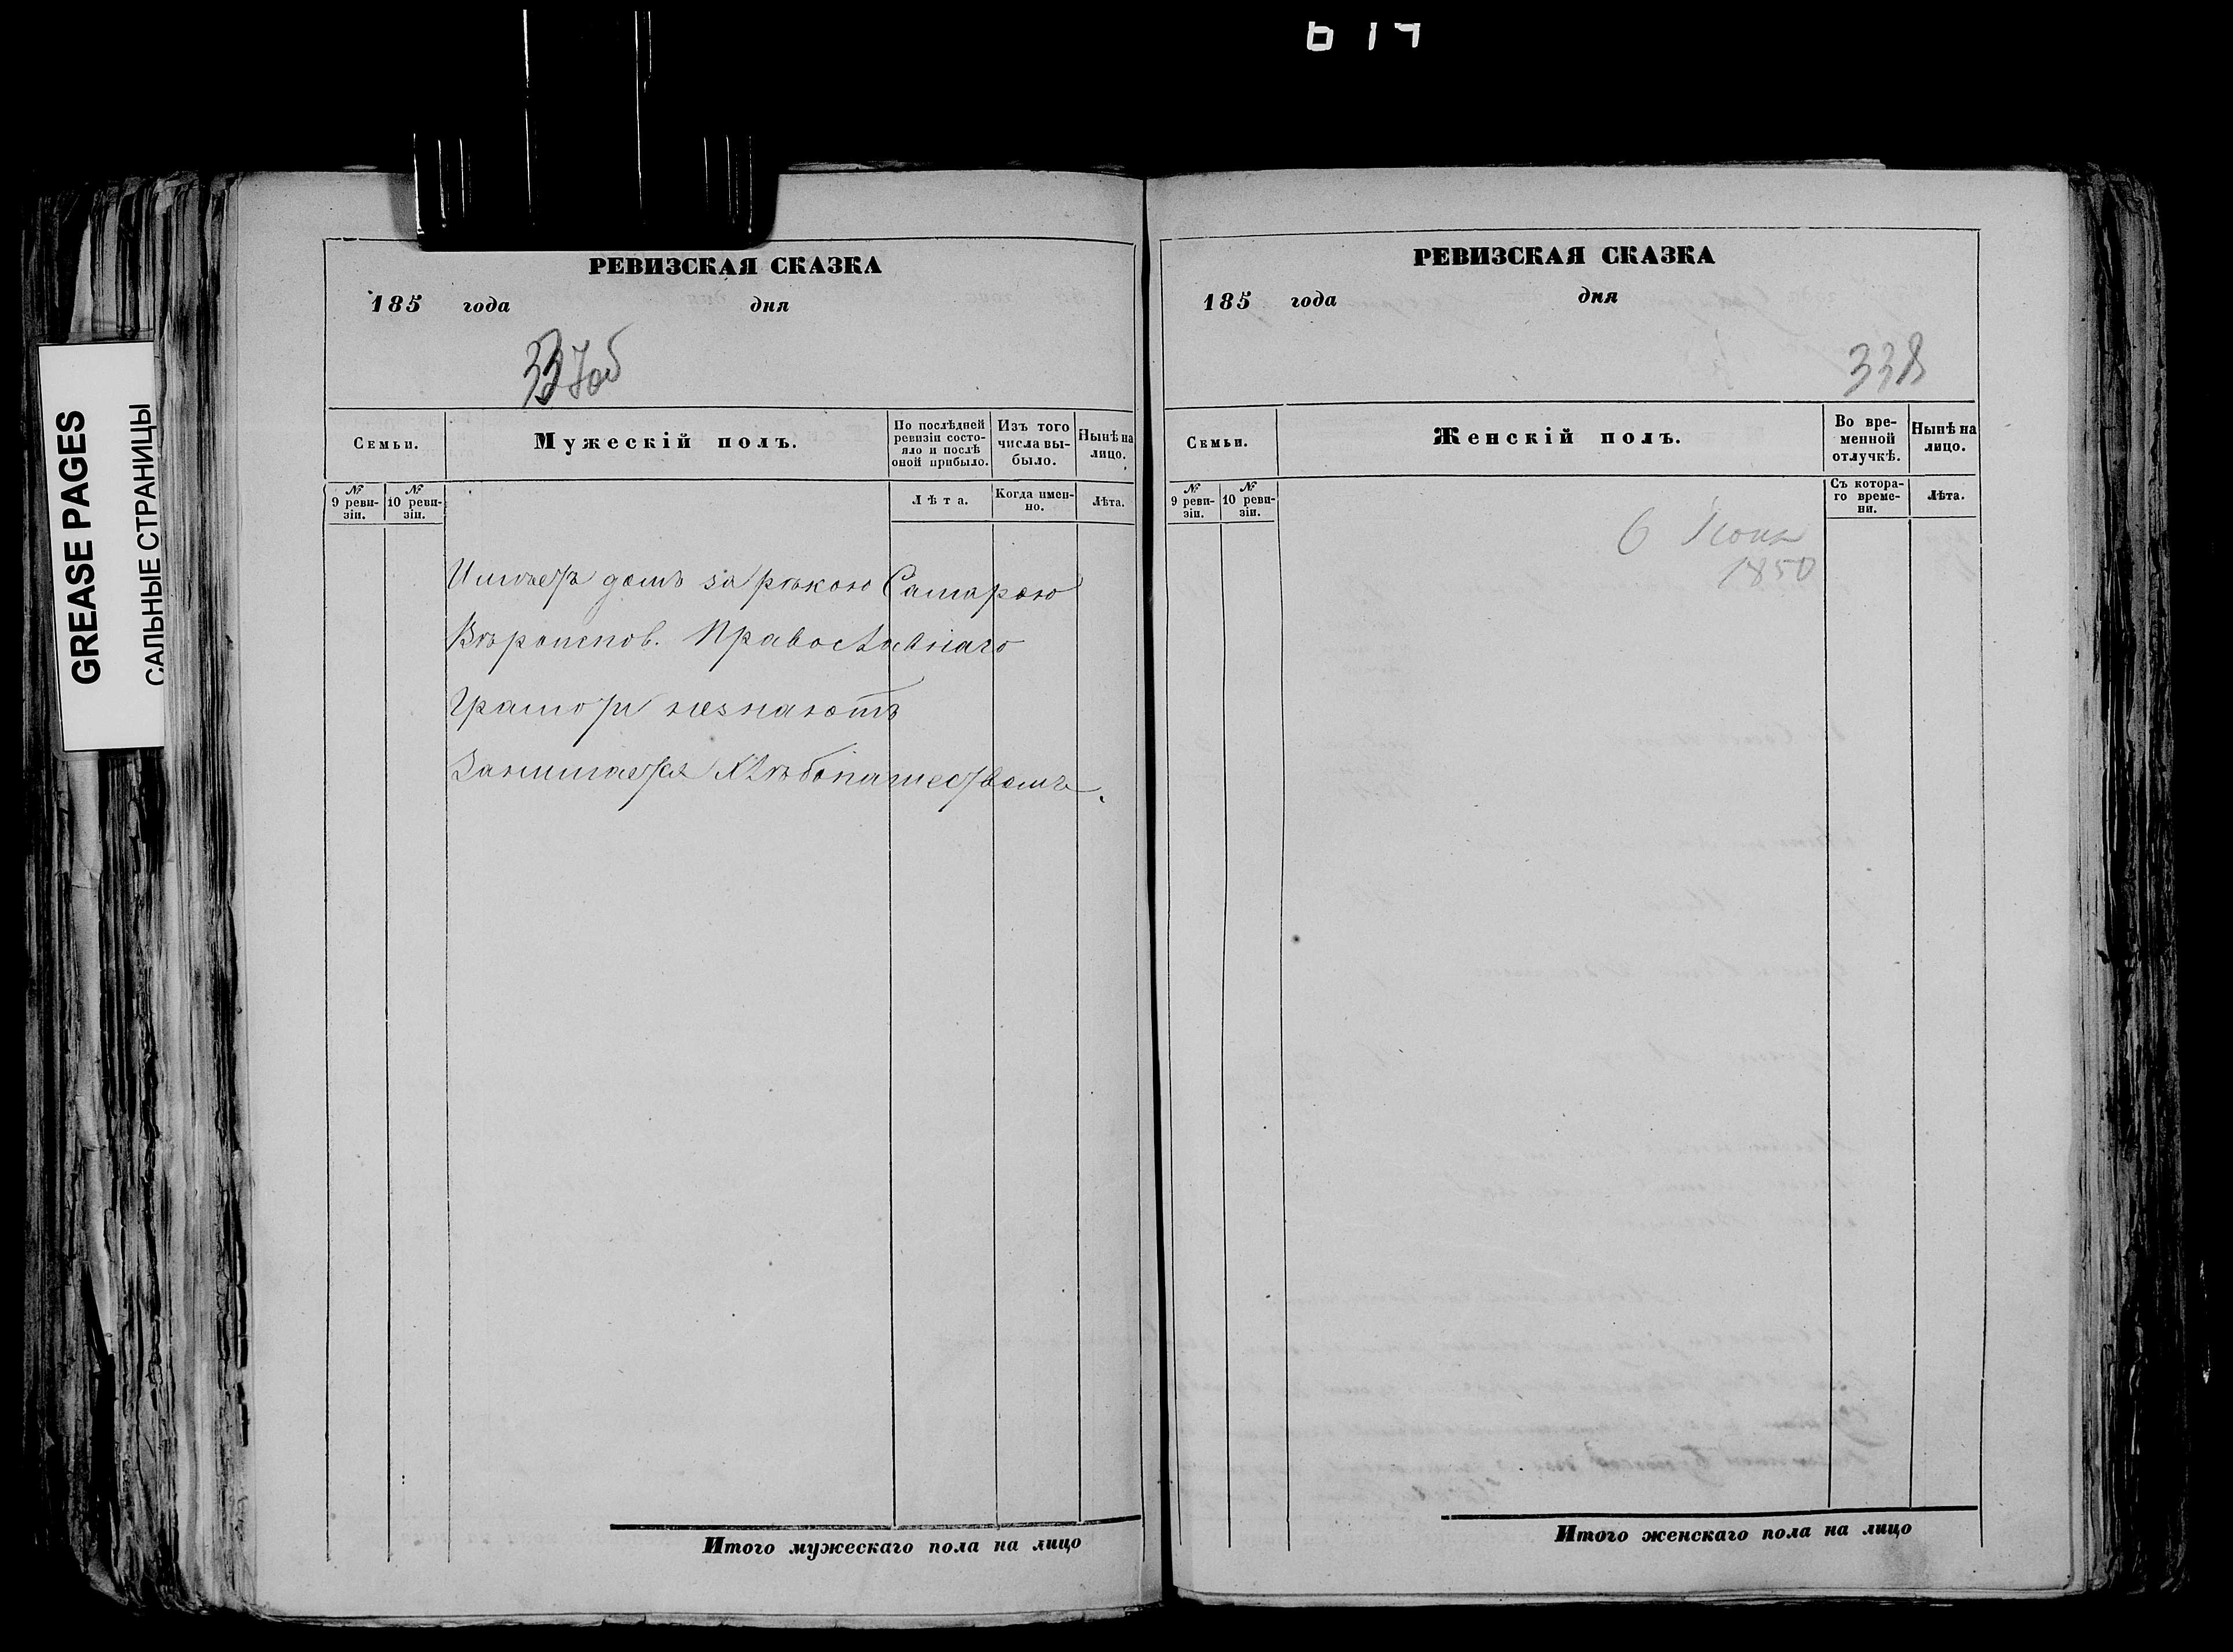 614
GREASE PAGES
САЛЬНЫЕ СТРАНИЦЫ
РЕВИЗСКАЯ СКАЗКА
185 года дня
337об
Семьи.
Мужескій полъ.
По послѣдней ревизіи состо-
яло и послѣ
оной прибыло.
Изъ того
числа вы-
было.
Нынѣ на
лицо.
№
9 реви-
зіи.
№
10 реви-
зіи.
Лѣта.
Когда имен-
но.
Лѣта.
Имѣетъ домъ за рѣкою Самарою
Вѣроиспов. Православнаго
Грамоти незнаютъ
Занимается Хлѣбопашествомъ.
Итого мужескаго пола на лицо
РЕВИЗСКАЯ СКАЗКА
185 года дня
338
Семьи.
Женскій полъ.
Во вре-
менной
отлучкѣ.
Нынѣ на
лицо.
№
9 реви-
зіи.
№
10 реви-
зіи.
Съ котора-
го време-
ни.
Лѣта.
6
1850
Итого женскаго пола на лицо